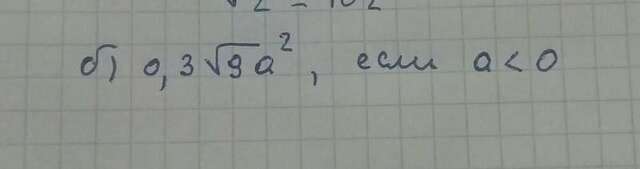 б) 0,3√9a², если a < 0